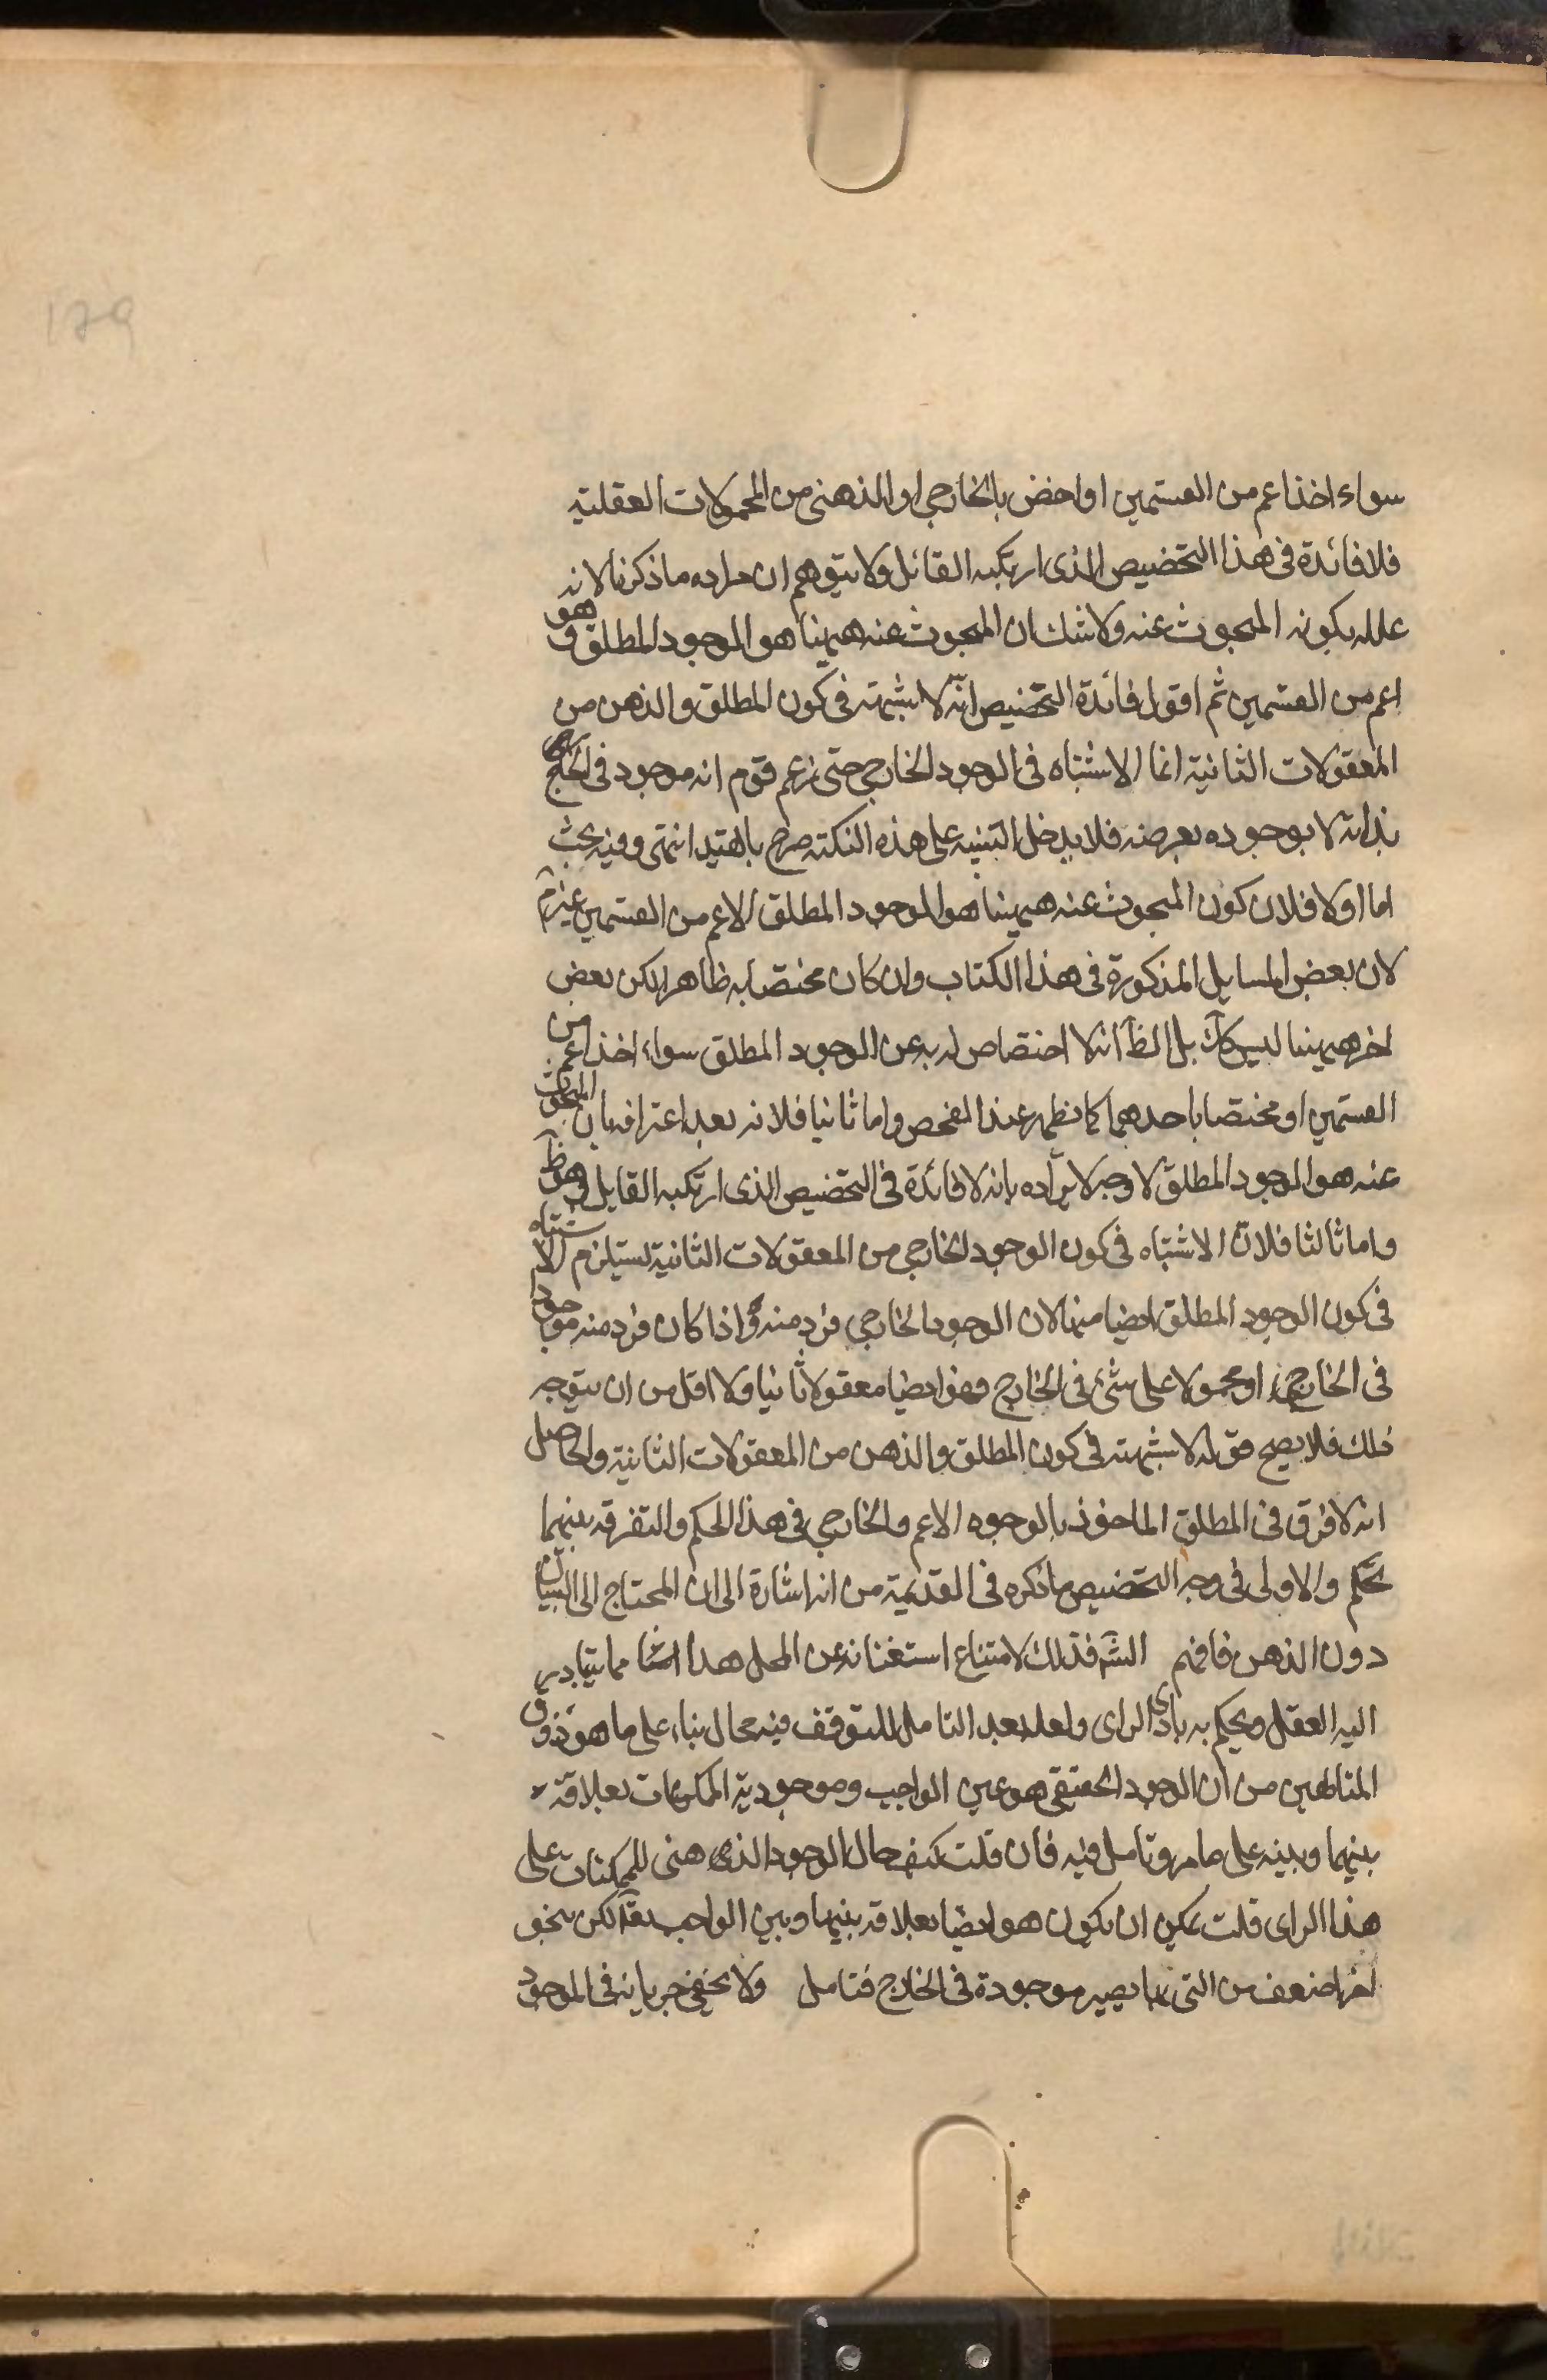 129
سواء اخذ اعم من القسمين او اخض بالخارجي او الذهنى من المحمولات العقلية
فلا فائدة فى هذا التخصيص الذى ارتكبه القائل ولا يتوهم ان مراده ما ذكرنا لانه
علله بكونه المبحوث عنه ولا شك ان المبحوث عنه ههينا هو الموجود المطلق وهو
اعم من القسمين ثم اقول فائدة التخصيص انه لا شبهة فى كون المطلق والذهن من
المعقولات الثانية انما الاشتباه فى الوجود الخارجي حتى زعم قوم انه موجود فى الخارج
بذاته لا بوجوده بعرضه فلا يدخل التنبيه على هذه النكتة صرح بالقيد انتهى وفيه بحث
اما اولا فلان كون المبحوث عنه ههينا هو الموجود المطلق الاعم من القسمين غيرم
لان بعض المسايل المذكورة فى هذا الكتاب وان كان مختصا به ظاهرا لكن بعض
اخر ههينا ليس كك بل الظ انه لا اختصاص له به عن الوجود المطلق سواء اخذ اعم من
القسمين او مختصا باحدهما كما يظهر عند الفحص واما ثانيا فلانه بعد اعترافه بان المبحوث
عنه هو الموجود المطلق لا وجه لايراده بانه لا فائدة فى التخصيص الذى ارتكبه القايل وهو ظ
واما ثالثا فلان الاشتباه فى كون الوجود الخارجي من المعقولات الثانية يستلزم الاشتباه
فى كون الوجود المطلق ايضا منها لان الوجود الخارجي فرد منه واذا كان فرد منه موجودا
فى الخارج او محمولا على شئ فى الخارج فهو ايضا معقولا ثانيا ولا اقل من ان يتوجه
ذلك فلا يصح قوله لا شبهة فى كون المطلق والذهن من المعقولات الثانية والحاصل
انه لا فرق فى المطلق الماخوذ بالوجوه الاعم والخارجي فى هذا الحكم والتفرقه بينهما
تحكم والاولى فى وجه التخصيص ما ذكره فى القديمة من انه اشارة الى ان المحتاج الى البيان
دون الذهن فافهم الش فذلك لامتناع استغنائه عن المحل هذا مما يتبادر
اليه العقل ويحكم به بادى الراى ولعل بعد التامل للتوقف فيه مجال بناء على ما هو ذوق
المتالهين من ان الوجود الحقيقى هو عين الواجب وموجودية الممكنات بعلاقة
بينهما وبينه على ما مر وتامل فيه فان قلت كيف حال الوجود الذهنى للممكنات على
هذا الراى قلت يمكن ان يكون هو ايضا بعلاقه بينهما وبين الواجب تعا لكن بنحو
اخر اضعف من التى بها يصير موجودة فى الخارج فتامل ولا يخفى جريانه فى الموجود